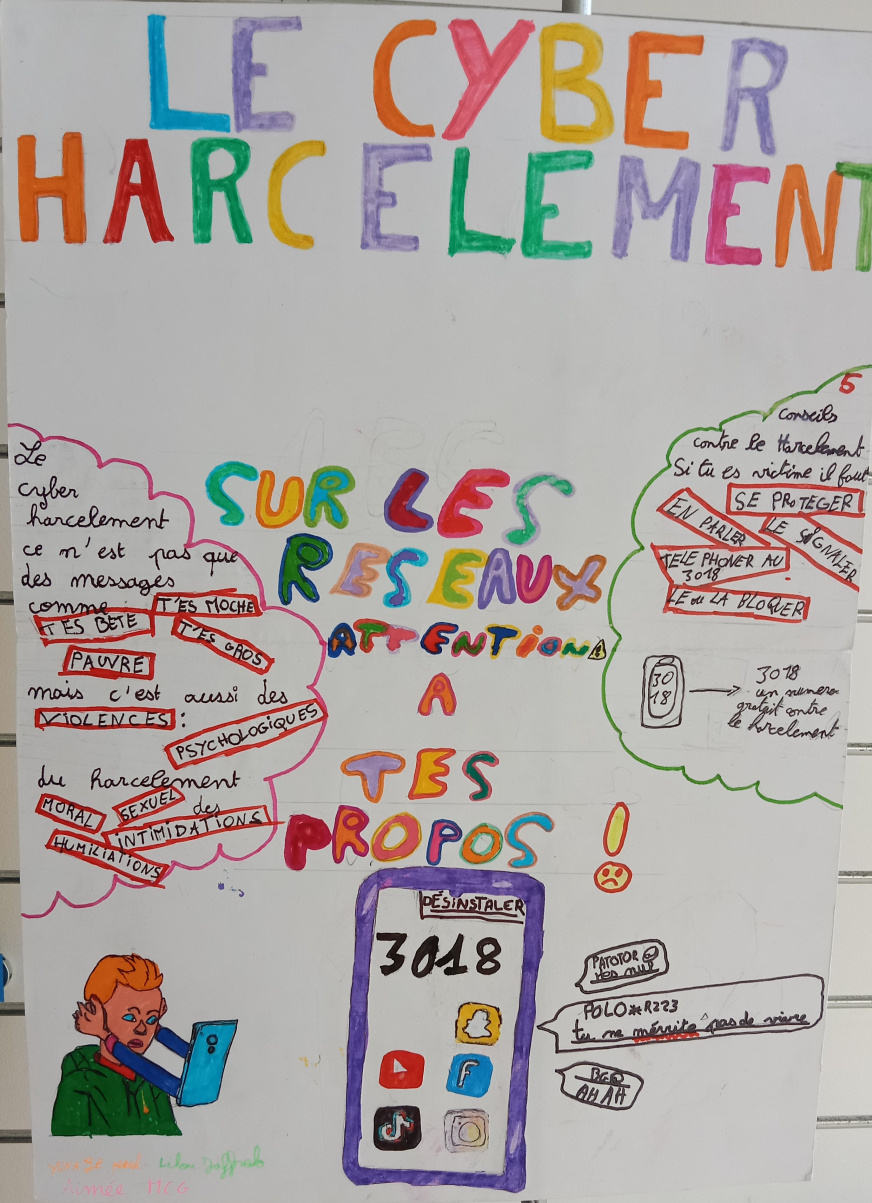 LE CYBER
HARCELEMENT
Le
cyber
harcelement
ce n'est pas que
des messages
comme T'ES MOCHE
T ES BÊTE
T'ES GROS
PAUVRE
mais c'est aussi des
VIOLENCES :
PSYCHOLOGIQUES
du harcelement
MORAL SEXUEL des
INTIMIDATIONS
HUMILIATIONS
SUR LES
RESEAUX
ATTENTION
A
TES
PROPOS !
5
conseils
contre le Harcelement
Si tu es victime il faut
SE PROTEGER
EN PARLER
LE SIGNALER
TELEPHONER AU
3018
LE ou LA BLOQUER
30
18
3018
un numero
gratuit contre
le harcelement
DÉSINSTALER
3018
PATOTOR@
t'es nul
POLO**R223
tu ne mérrite pas de vivre
AH AH
Lilou
Aimée